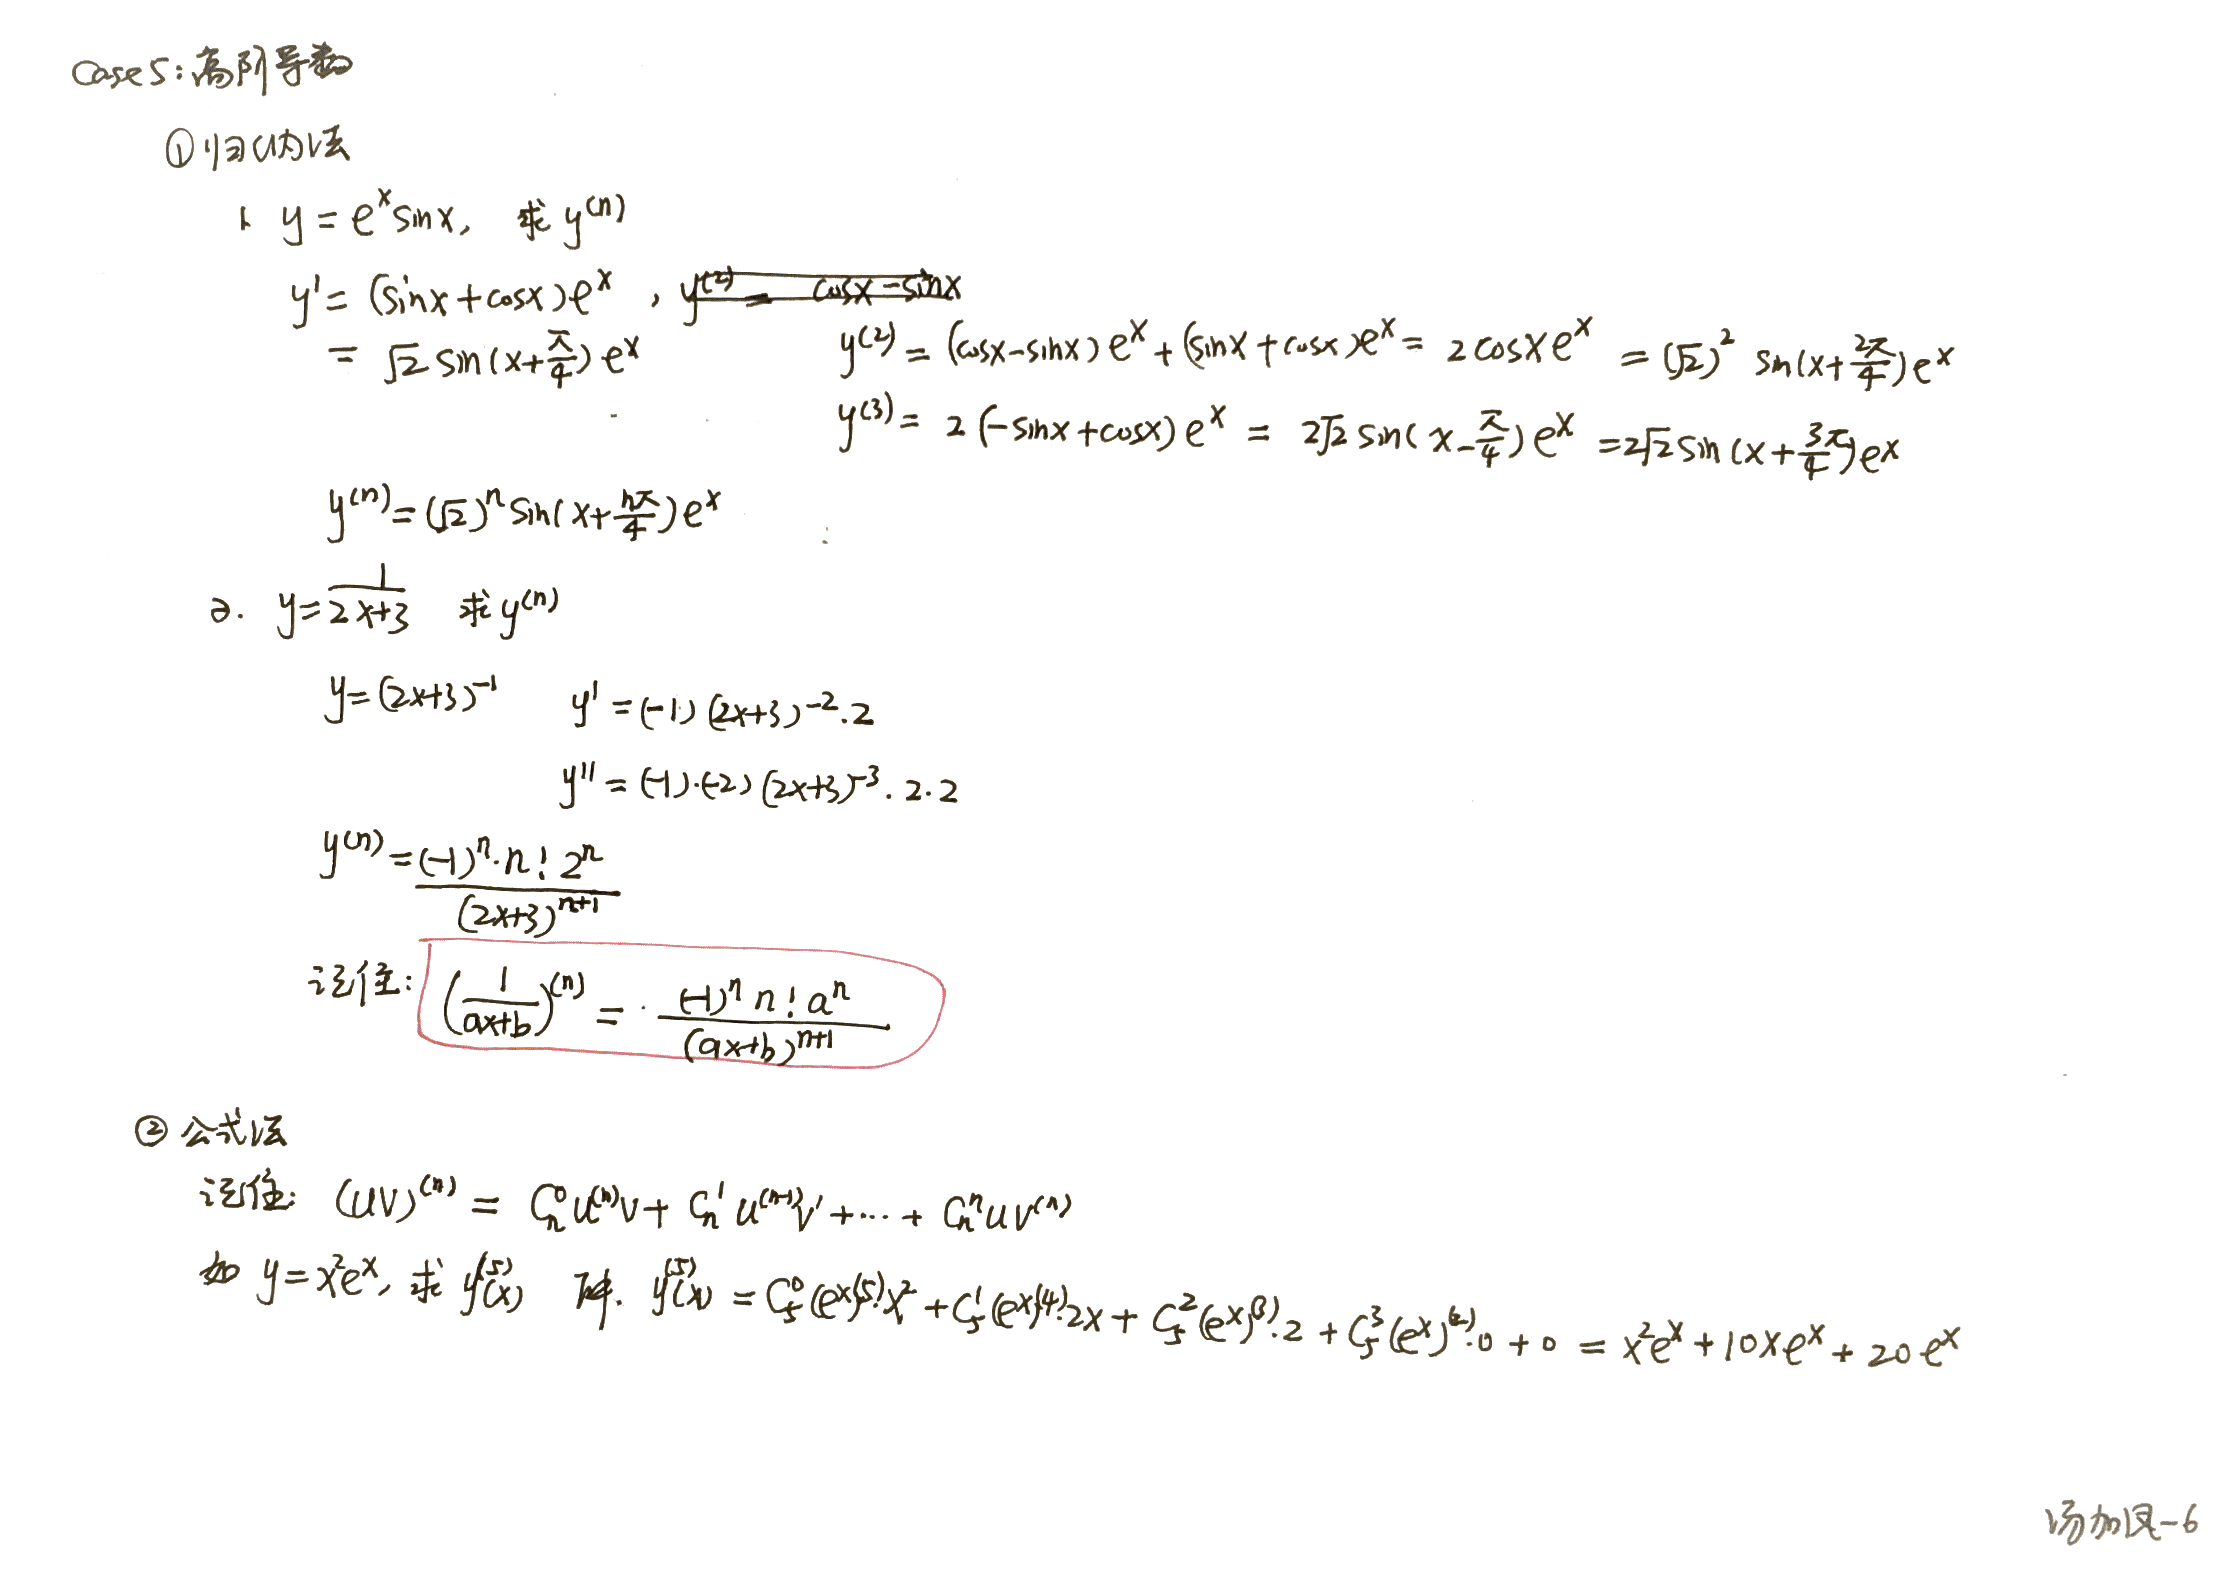 Case5:高阶导数
①归纳法
1. y = e^x sinx, 求 y^(n)
y' = (sinx+cosx)e^x , y^(2) = cosx-sinx
= √2 sin(x+π/4) e^x
y^(2) = (cosx-sinx) e^x + (sinx+cosx)e^x = 2cosx e^x = (√2)^2 sin(x+2π/4) e^x
y^(3) = 2(-sinx+cosx) e^x = 2√2 sin(x-π/4) e^x = 2√2 sin(x+3π/4) e^x
y^(n) = (√2)^n sin(x+nπ/4) e^x
2. y = 1/(2x+3) 求 y^(n)
y = (2x+3)^-1 y' = (-1)(2x+3)^-2 · 2
y'' = (-1)·(-2)(2x+3)^-3 · 2 · 2
y^(n) = (-1)^n · n! 2^n / (2x+3)^(n+1)
记住: (1/(ax+b))^(n) = (-1)^n n! a^n / (ax+b)^(n+1)
② 公式法
记住: (uv)^(n) = C_n^0 u^(n) v + C_n^1 u^(n-1) v' + ··· + C_n^n u v^(n)
如 y = x^2 e^x, 求 y^(5)(x) 解. y^(5)(x) = C_5^0 (e^x)^(5) · x^2 + C_5^1 (e^x)^(4) · 2x + C_5^2 (e^x)^(3) · 2 + C_5^3 (e^x)^(2) · 0 + 0 = x^2 e^x + 10x e^x + 20 e^x
汤加凤-6